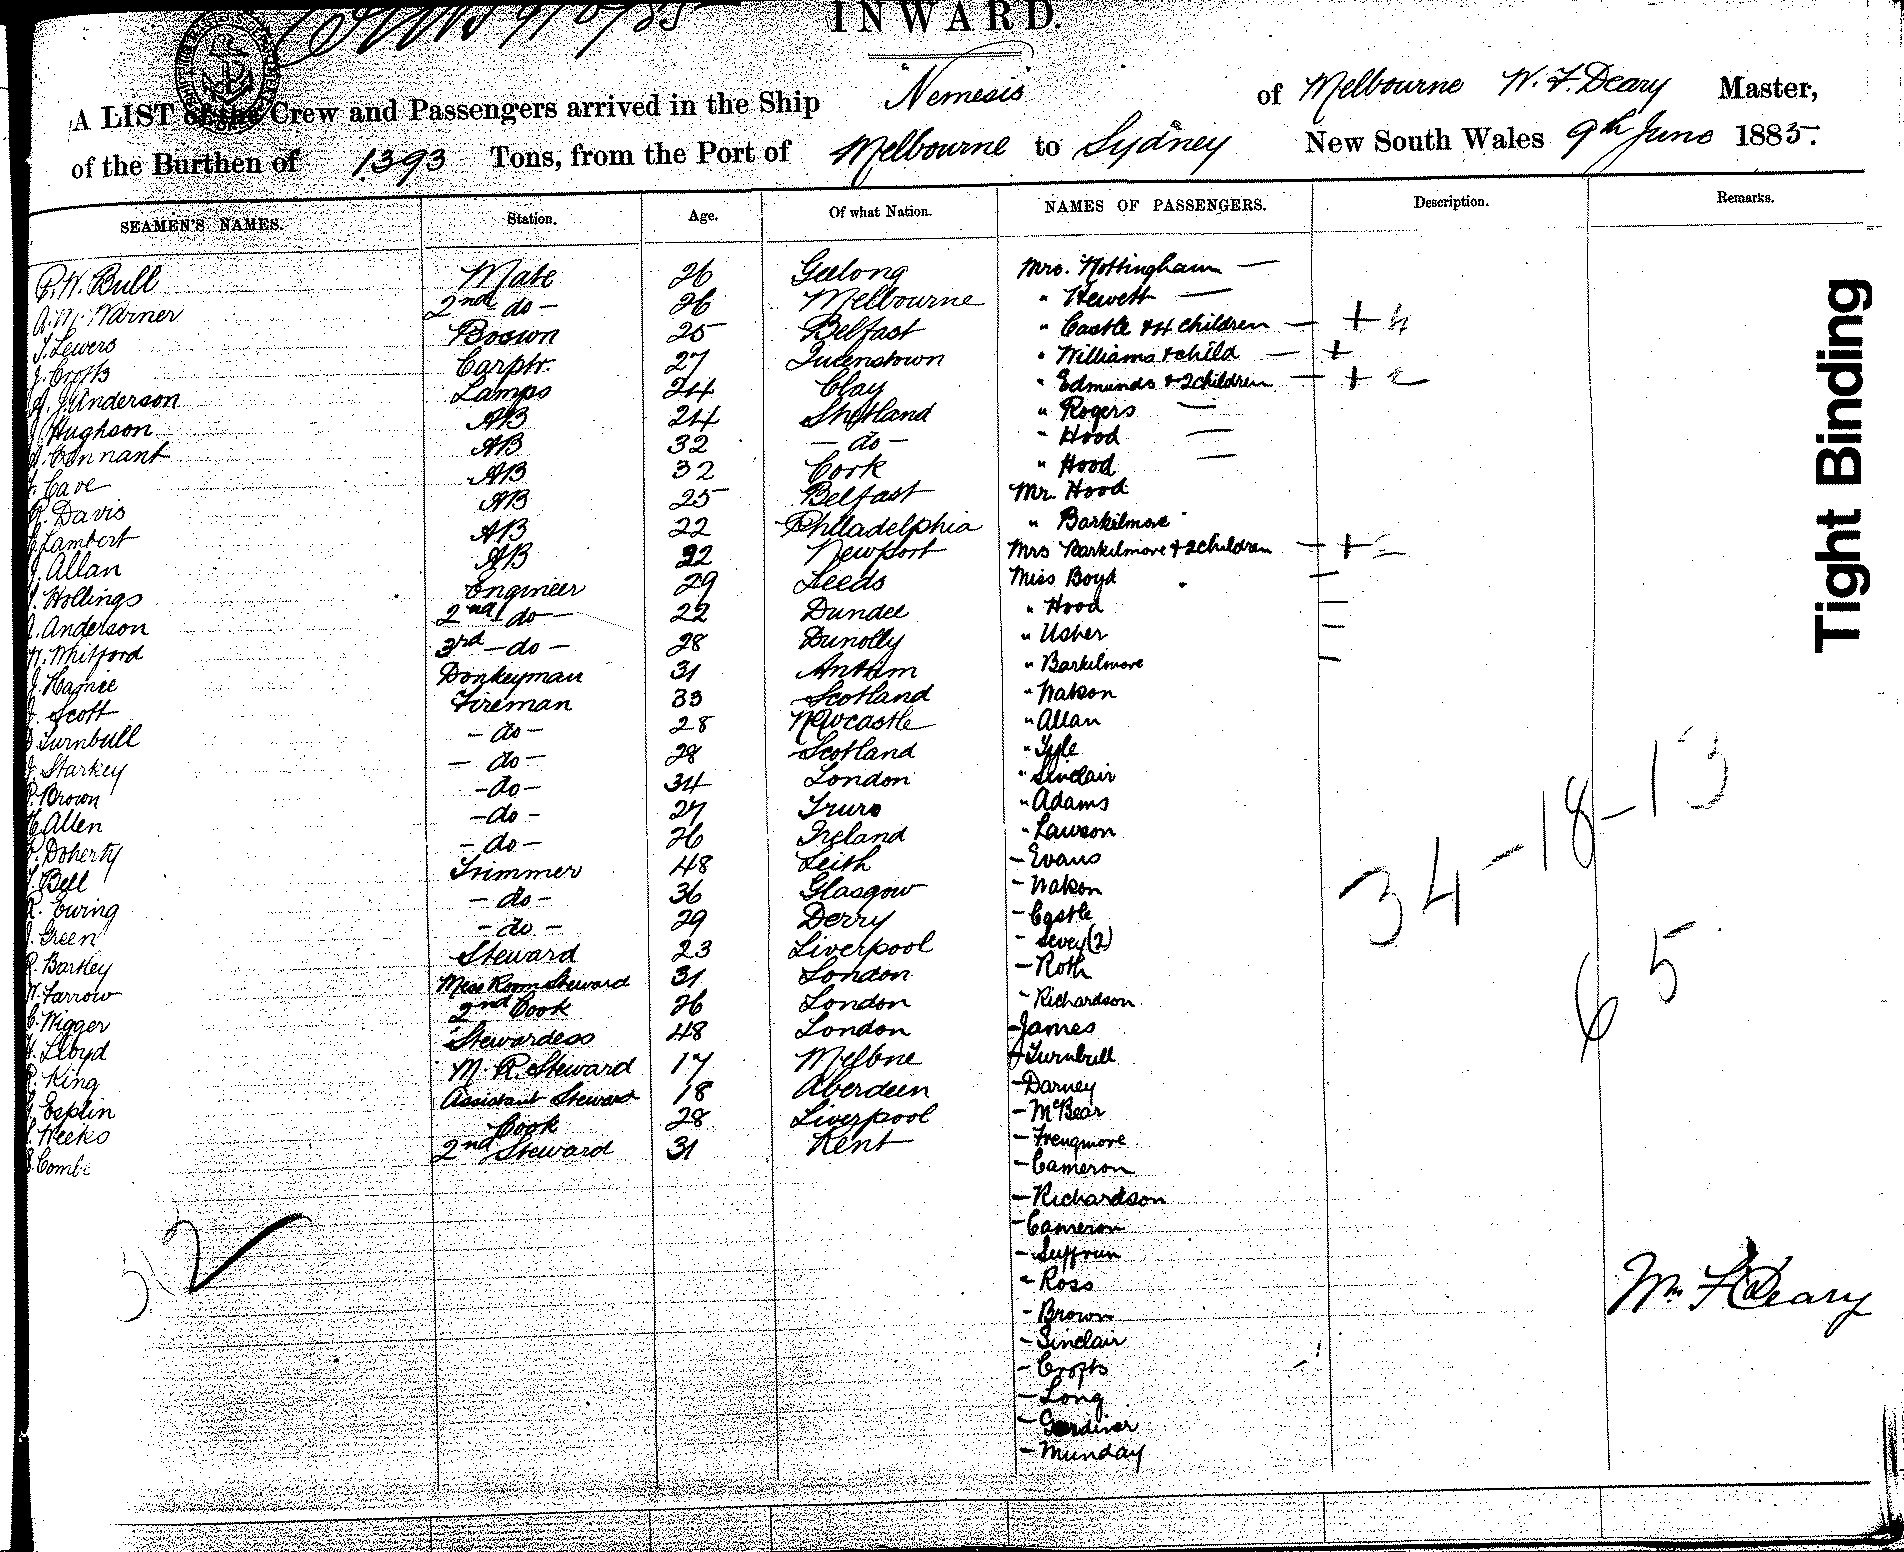 INWARD.
A LIST of the Crew and Passengers arrived in the Ship "Nemesis" of Melbourne W. F. Deary Master,
of the Burthen of 1393 Tons, from the Port of Melbourne to Sydney New South Wales 9th June 1885.
SEAMEN'S NAMES. Station. Age. Of what Nation. NAMES OF PASSENGERS. Description. Remarks.
P. W. Bull Mate 26 Geelong Mrs. Nottingham —
A. M. Warner 2nd do - 26 Melbourne " Hewett —
T. Lewers Bosun 25 Belfast " Castle & 4 children — + 4
J. Crofts Carptr. 27 Queenstown " Williams & child — +
J. Anderson Lamps 24 Clay " Edmunds & 2 children — + 2
Hughson AB 24 Shetland " Rogers —
Connant AB 32 - do - " Hood —
Cave AB 32 Cork " Hood —
Davis AB 25 Belfast Mr. Hood
Lambert AB 22 Philadelphia " Barkilmore
J. Allan AB 22 Newport Mrs Barkilmore & 2 children — + 2
Hollings Engineer 29 Leeds Miss Boyd —
Anderson 2nd do - 22 Dundee " Hood —
Whitford 3rd - do - 28 Dunolly " Usher —
Donkeyman 31 Antrim " Barkilmore —
Scott Fireman 33 Scotland " Watson
Turnbull - do - 28 Newcastle " Allan
Starkey - do - 28 Scotland " Lyle
Brown - do - 34 London " Sinclair
Allen - do - 27 Truro " Adams
Doherty - do - 26 Ireland " Lawson
Bell Trimmer 48 Leith - Evans
Ewing - do - 36 Glasgow - Watson
Green - do - 29 Derry - Castle
Barkey Steward 23 Liverpool - Levey (2)
Farrow Mess Room Steward 31 London - Roth
Wigger 2nd Cook 26 London - Richardson
Lloyd Stewardess 48 London - James
King M. R. Steward 17 Melbne - Turnbull
Esplin Assistant Steward 18 Aberdeen - Darney
Weeks Cook 28 Liverpool - McBear
Combe 2nd Steward 31 Kent - Trengmore
- Cameron
- Richardson
- Cameron
- Suffrun
- Ross
- Brown
- Sinclair
- Crofts
- Long
- Gardiner
- Munday
34-18-13
65
32
Wm F Deary
Tight Binding